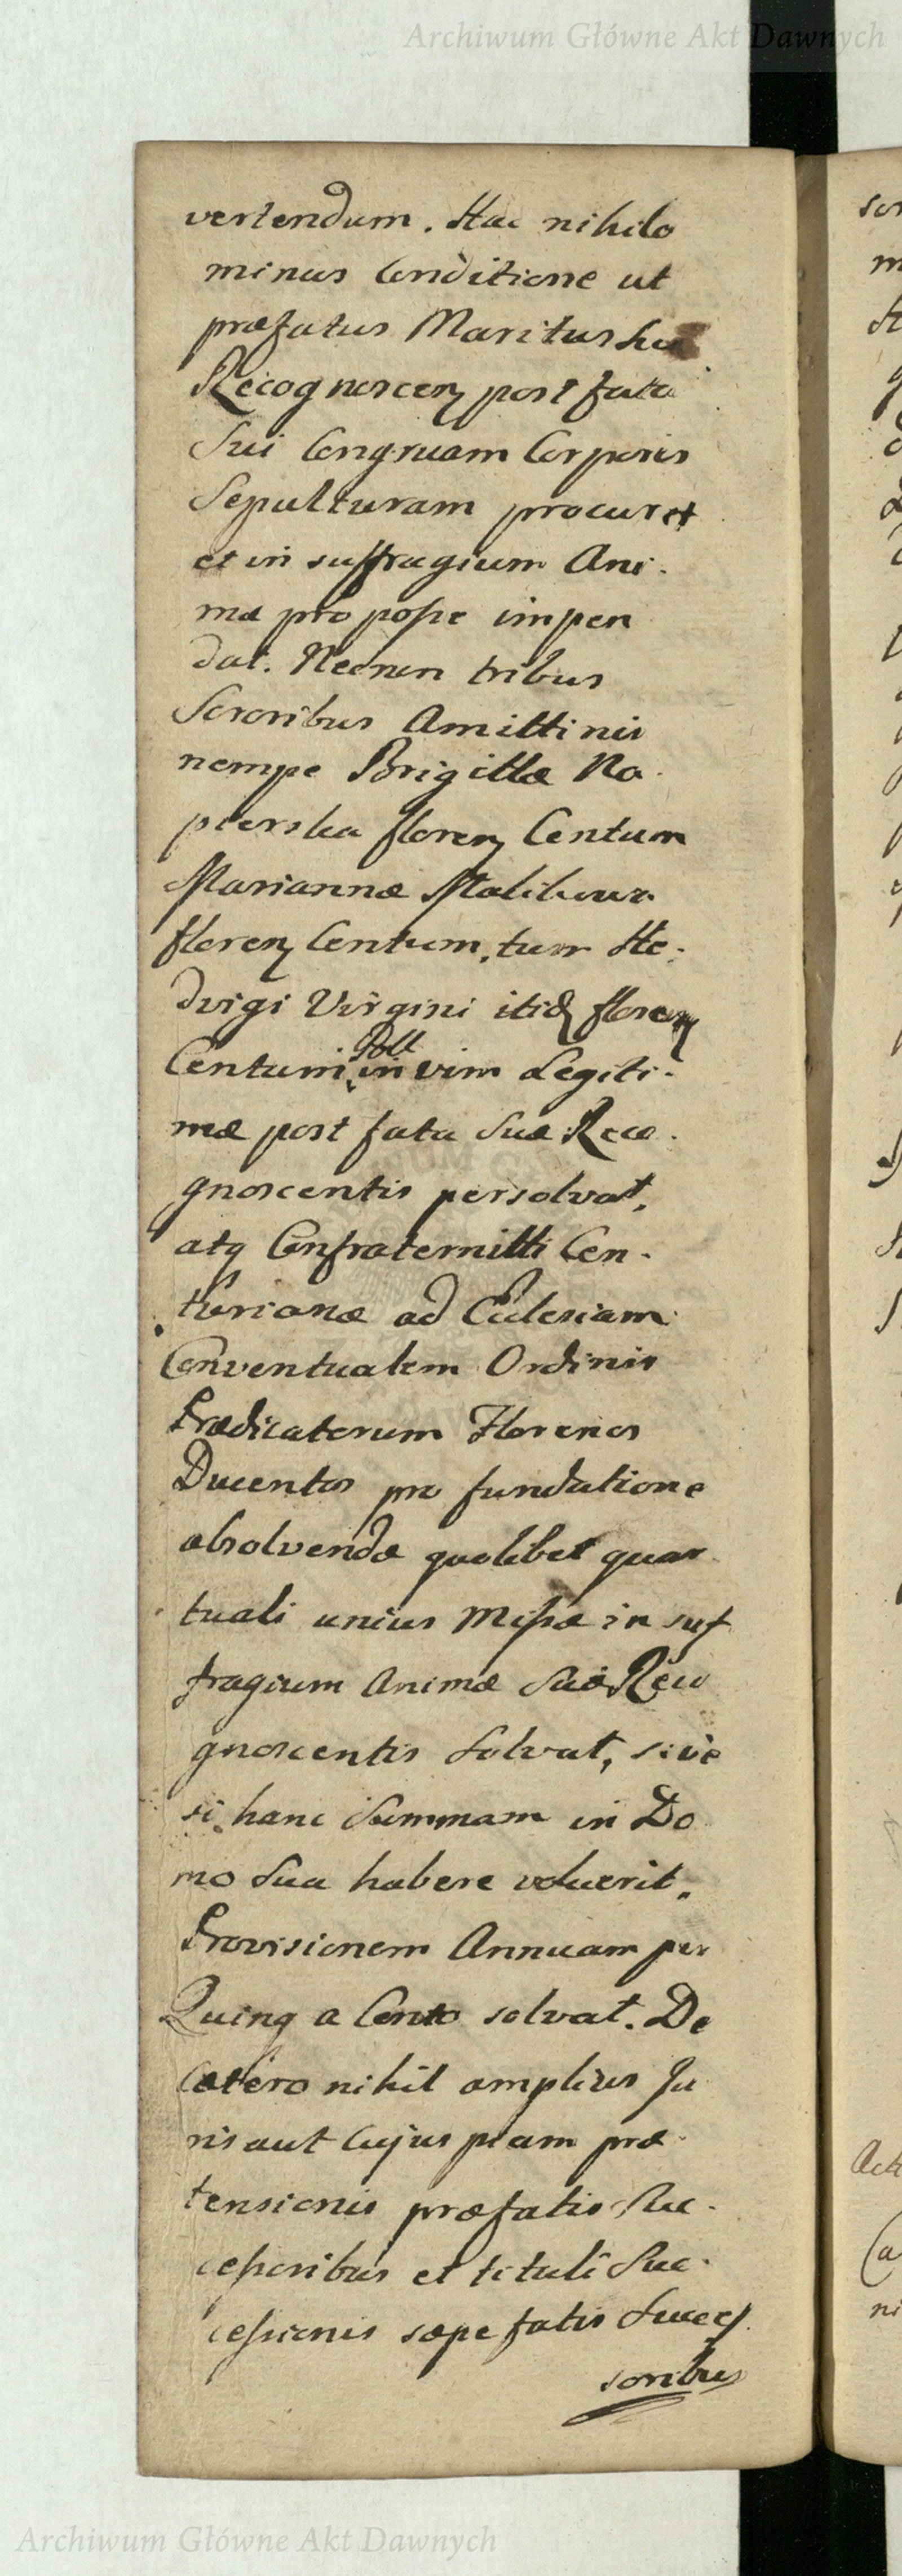 Archiwum Główne Akt Dawnych
vertendum. Hac nihilo
minus Conditione ut
præfatus Maritus Suæ
Recognoscen post fata
Sui Congruam Corporis
Sepulturam procuret
et in suffragium Ani-
mæ pro posse impen
dat. Necnon tribus
Sororibus Amittinis
nempe Brigittæ Na-
pierska floren Centum
Mariannæ
floren Centum, tum He-
dvigi Virgini itid floren
Poll
Centum, in vim Legiti-
mæ post fata Suæ Reco-
gnoscentis persolvat,
atq Confraternitti Cen-
turionæ ad Ecclesiam
Conventualem Ordinis
Prædicatorum Florenos
Ducentos pro fundatione
absolvendæ quolibet quar
tuali unius Missæ in suf
fragium Animæ Suæ Reco
gnoscentis Solvat, sive
si hanc Summam in Do
mo Sua habere voluerit,
Provisionem Annuam per
Quinq a Cento solvat. De
Cætero nihil amplius Ju
ris aut Cujuspiam præ-
tensionis præfatis Suc-
cessoribus et tituli Suc-
cessionis sæpefatis Succes
soribus
Archiwum Główne Akt Dawnych